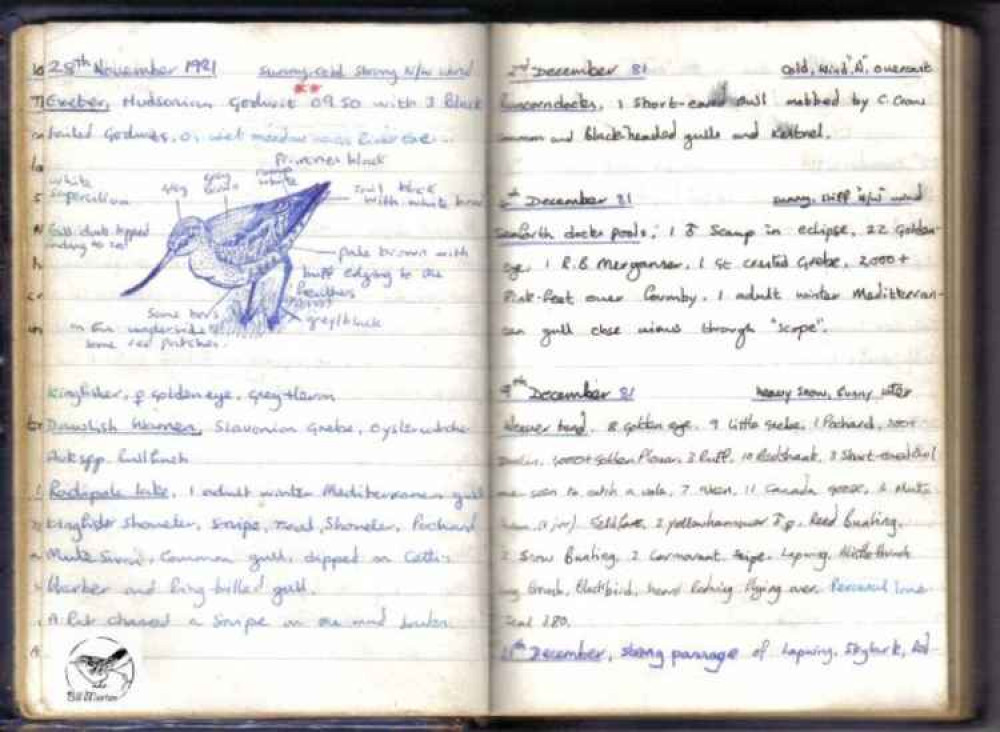 28th November 1981 Sunny, cold strong N/w wind
Exeter, Hudsonian Godwit 09.50 with 3 Black
tailed Godwits, on wet meadow near River Exe
Primaries black
white
supercilium
grey
grey
rump
white
tail black
with white
pale brown with
buff edging to the
feathers
Some bars
on the underside
some red patches.
grey/black
Kingfisher, ♀ goldeneye, grey heron
Dawlish Warren, Slavonian Grebe, Oystercatcher
Auk spp. bullfinch
Radipole lake, 1 adult winter Mediterranean gull
Kingfisher Shoveler, Snipe, Teal, Shoveler, Pochard
Mute Swan, Common gull, dipped on Cettis
Warbler and Ring-billed gull.
A Rat chased a Snipe on the mud
Bill Morton
2nd December 81 Cold, wind, overcast
Runcorn docks, 1 Short-eared Owl mobbed by C. Crows
common and black-headed gulls and Kestrel.
December 81 sunny, stiff N/w wind
Seaforth docks pools, 1 ♂ Scaup in eclipse, 22 Golden-
eye, 1 R.B Merganser, 1 Gt crested Grebe, 2,000+
Pink-feet over Formby, 1 adult winter Mediterran-
ean gull close views through "scope".
9th December 81 heavy snow, sunny later
Weaver bend, 8 golden eye, 9 little Grebe, 1 Pochard, 500+
Dunlin, 1,000+ Golden Plover, 3 Ruff, 10 Redshank, 3 Short-eared Owl
one seen to catch a vole, 7 11 Canada goose, Mute
Swan (1 juv) Fieldfare, 2 yellowhammer ♂♀ Reed Bunting,
2 Snow Bunting, 2 Cormorant, Snipe, Lapwing, Mistle thrush
Song thrush, Blackbird, heard Redwing flying over, Percival lane
Teal 180.
11th December, strong passage of Lapwing, Skylark, Red-